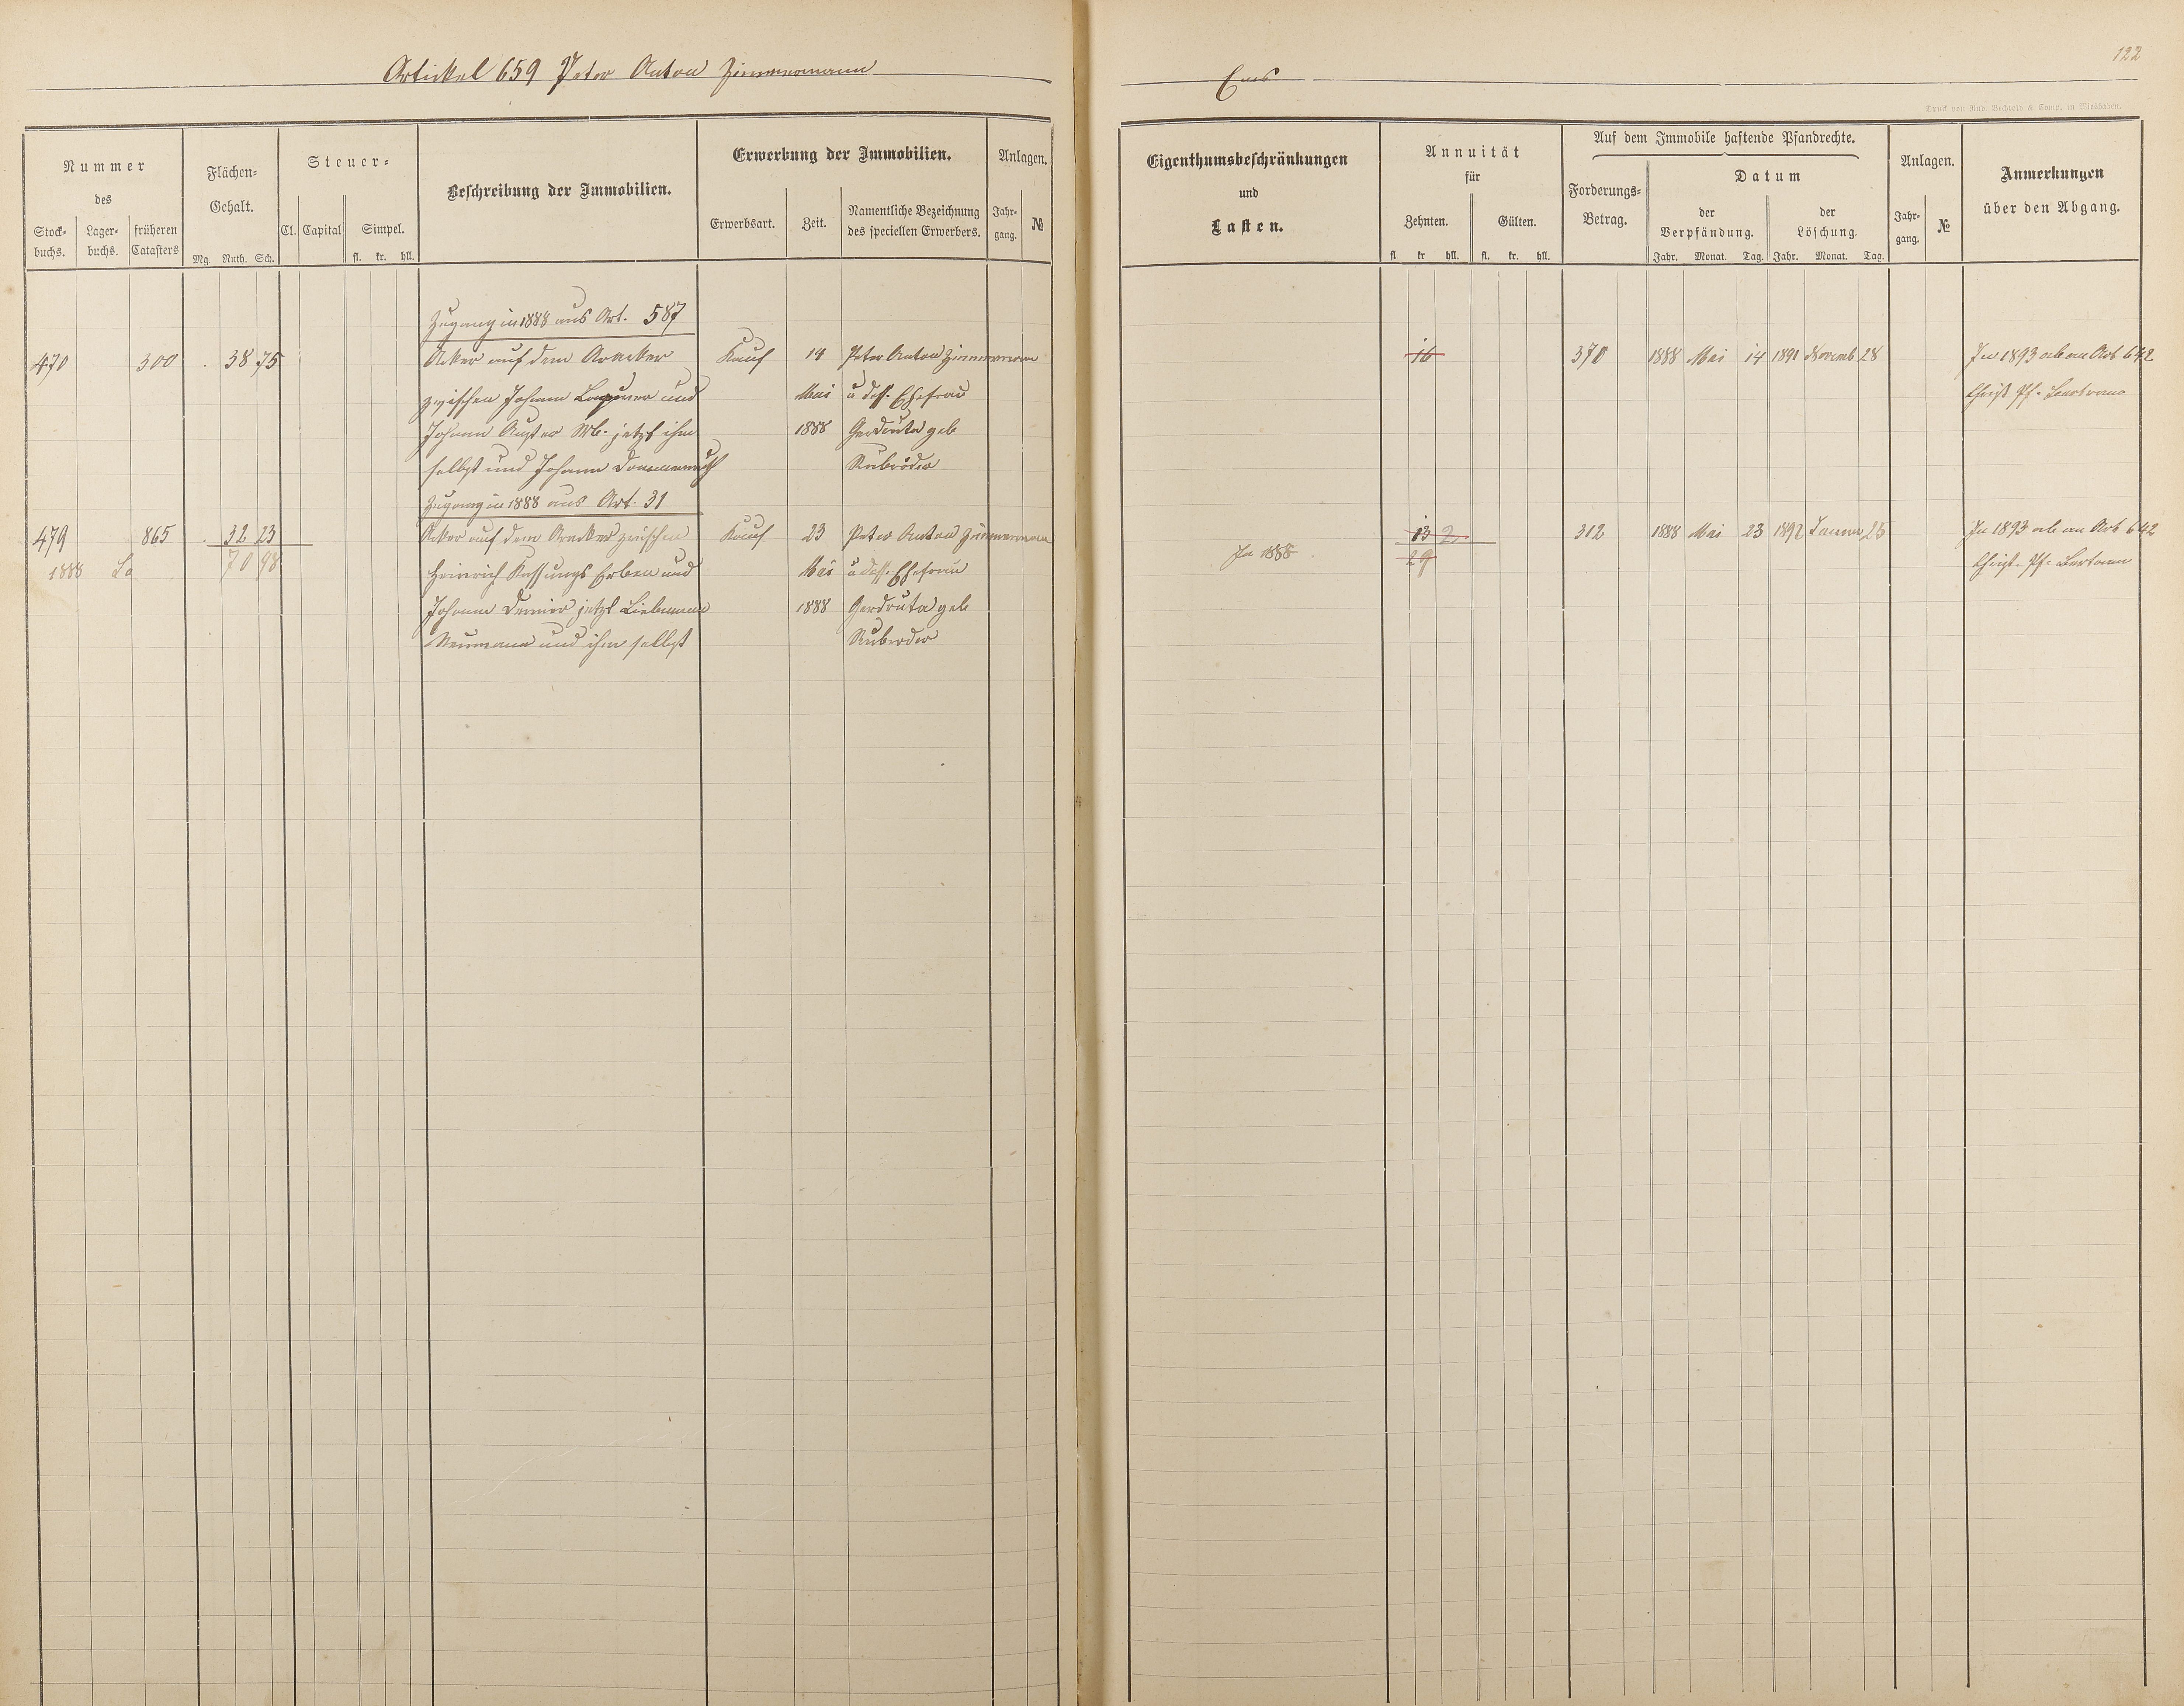 Artikel 659 Peter Anton Zimmermann
Ems
122
Druck von Rud. Bechtold & Comp. in Wiesbaden.
Nummer
des
Stock-
buchs.
Lager-
buchs.
früheren
Catasters
Flächen-
Gehalt.
Mg. Ruth. Sch.
Steuer-
Cl. Capital Simpel.
fl. kr. hll.
Beschreibung der Immobilien.
Erwerbung der Immobilien.
Erwerbsart. Zeit.
Namentliche Bezeichnung
des speciellen Erwerbers.
Anlagen.
Jahr-
gang.
№
Eigenthumsbeschränkungen
und
Lasten.
Annuität
für
Zehnten. Gülten.
fl kr hll. fl. kr. hll.
Auf dem Immobile haftende Pfandrechte.
Forderungs-
Betrag.
Datum
der
Verpfändung.
der
Löschung
Jahr. Monat. Tag. Jahr. Monat. Tag.
Anlagen.
Jahr-
gang.
№
Anmerkungen
über den Abgang.
Zugang in 1888 aus Art. 587
470 300 . 38 75 Acker auf dem Aracker Kauf 14 Peter Anton Zimmermann 16 370 1888 Mai 14 1891 Novemb 28 In 1893 ab an Art 642
zwischen Johann und Mai u dess. Ehefrau Christ Pf.
Johann jetzt ihm 1888 Gerdruta geb
selbst und Johann
Zugang in 1888 aus Art. 31
479 865 . 32 23 Acker auf dem Aracker zwischen Kauf 23 Peter Anton Zimmermann 13 2 312 1888 Mai 23 1892 Januar 25 In 1893 ab an Art 642
1888 La 70 98 Heinrich Erben und Mai u dess. Ehefrau In 1888 29 Christ. Pf.
Johann jetzt 1888 Gerdruta geb
Neumann und ihm selbst